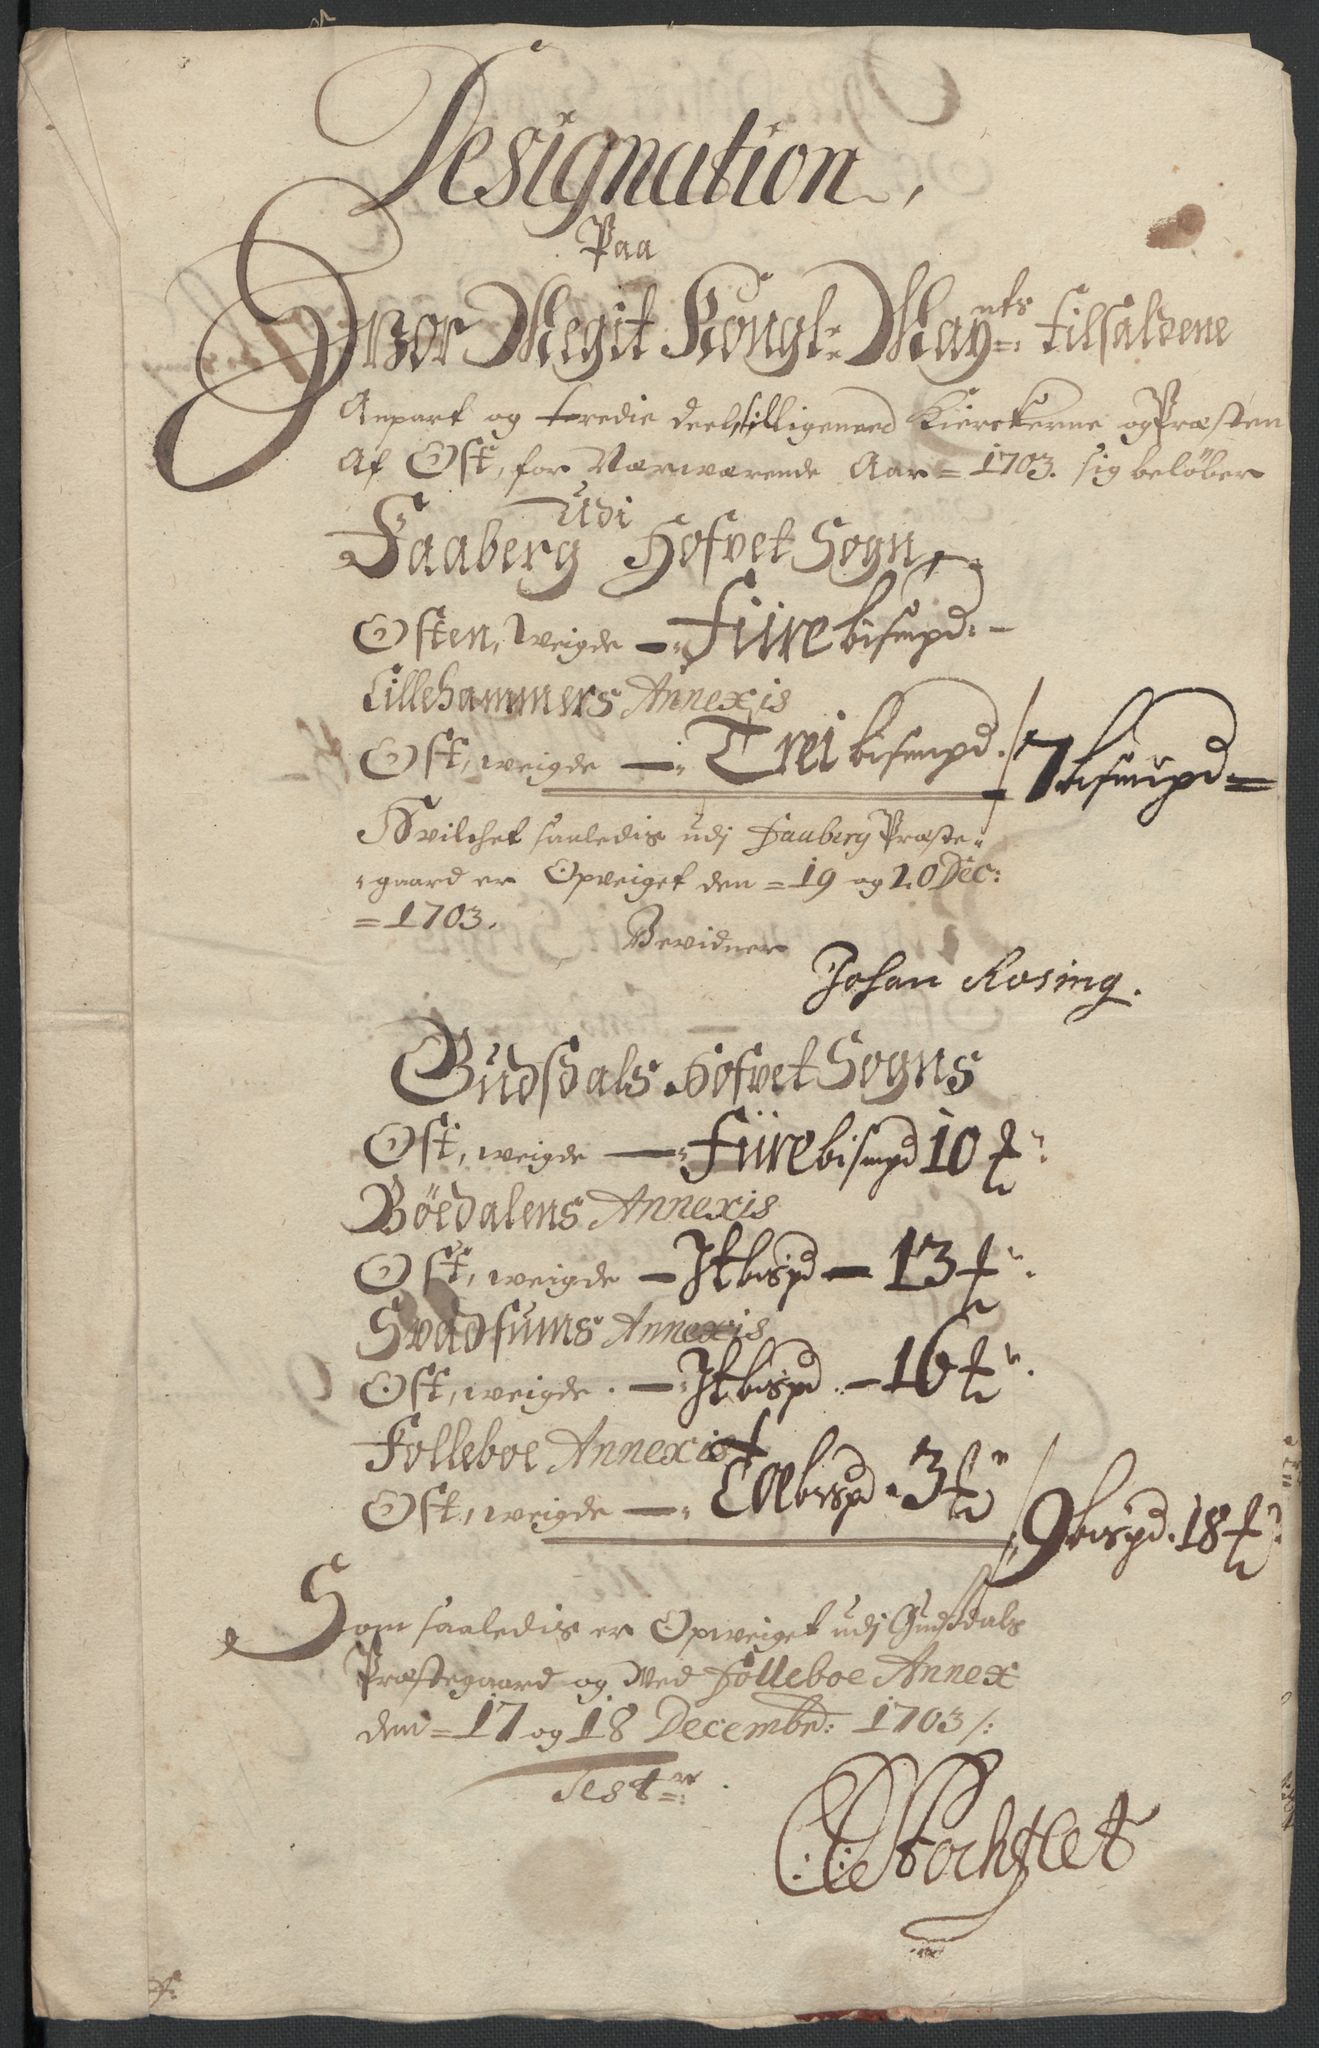 Designation,
Paa
Hvor Megit Kongl: Mayts: tilfaldene
Anpart og tredie deel, tilligemed Kierckerne og Præsten
Af Ost, for Nærværende Aar = 1703. sig beløber
Udi
Faaberg Hofvet Sogn
Osten, weigde —: Fiire bismpd: –
Lillehammers Annexis
Ost, weigde —: Trei bismpd. / 7 bismpd =
Hvilchet saaledis udj Faaberg Præste-
gaard er Opveiget den = 19 og 20 Dec:
= 1703.
Bevidner
Johan Rosing.
Gudsdals Hofvet Sogns
Ost, weigde —: Fiire bismpd 10 ℔:
Böedalens Annexis
Ost, weigde — It bispd — 13 ℔:
Svadsums Annexis
Ost, weigde. —: It bispd. — 16 ℔.
Folleboe Annexis
Ost, weigde —: To bispd. 3 ℔ / 9 bispd. 18 ℔:
Som saaledis er Opweiget udj Gudsdals
Præstegaard og Ved Folleboe Annex
den = 17 og 18 Decembr: 1703 /:
Test: